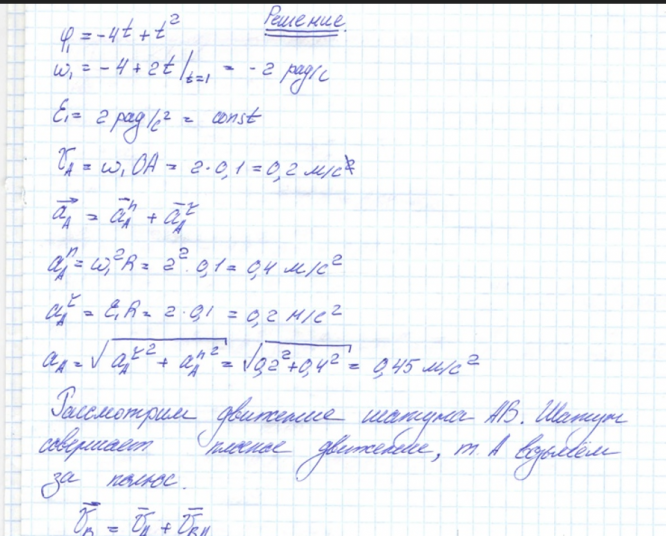 Решение.
φ₁ = -4t + t²
ω₁ = -4 + 2t |t=1 = -2 рад/с
ε₁ = 2 рад/с² = const
υ_A = ω₁OA = 2·0,1 = 0,2 м/с
a⃗_A = a̅_A^n + a̅_A^τ
a_A^n = ω₁²R = 2²·0,1 = 0,4 м/с²
a_A^τ = ε₁R = 2·0,1 = 0,2 м/с²
a_A = √(a_A^τ² + a_A^n²) = √(0,2² + 0,4²) = 0,45 м/с²
Рассмотрим движение шатуна AB. Шатун
совершает плоское движение, т. A возьмём
за полюс.
υ̅_B = υ̅_A + υ̅_BA